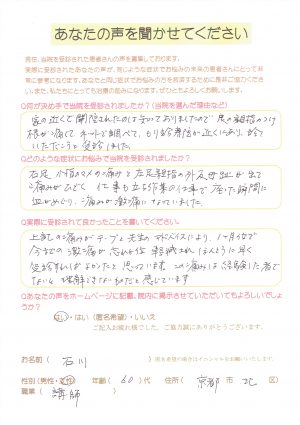 あなたの声を聞かせてください
現在、当院を受診された患者さんの声を募集しております。
実際に受診されたあなたの声が、同じような症状でお悩みの未来の患者さんにとって非常に参考になります。
Q何が決め手で当院を受診されましたか?(当院を選んだ理由など)
家の近くで開院されたのは知っておりましたので 足の親指のつけ
根が痛くて ネットで調べて、もり
いただこうと受診しました。
Qどのような症状にお悩みで当院を受診されましたか?
右足 小指のマメの痛みと左足親指の外反母趾が出て
痛みがひどく 仕事も立ち作業の仕事で座った瞬間に
痛みが激痛になっていました。
Q実際に受診されて良かったことを書いてください。
上記の痛みがテープと先生のアドバイスにより、1ヶ月位で
今までの激痛が忘れる位 軽減され ほんとうに早く
受診すればよかったと思っています。この痛みは経験した者で
ないと理解できないものだと感じています
Qあなたの声をホームページに記載、院内に掲示させていただいてもよろしいでしょうか?
はい・はい(匿名希望)・いいえ
ご記入お疲れ様でした。ご協力誠にありがとうございます。
お名前( 石川 )匿名希望の場合はイニシャルをお願いいたします。
性別(男性・女性) 年齢( 60 )代 住所( 京都 市 北 区)
職業( 講師 )